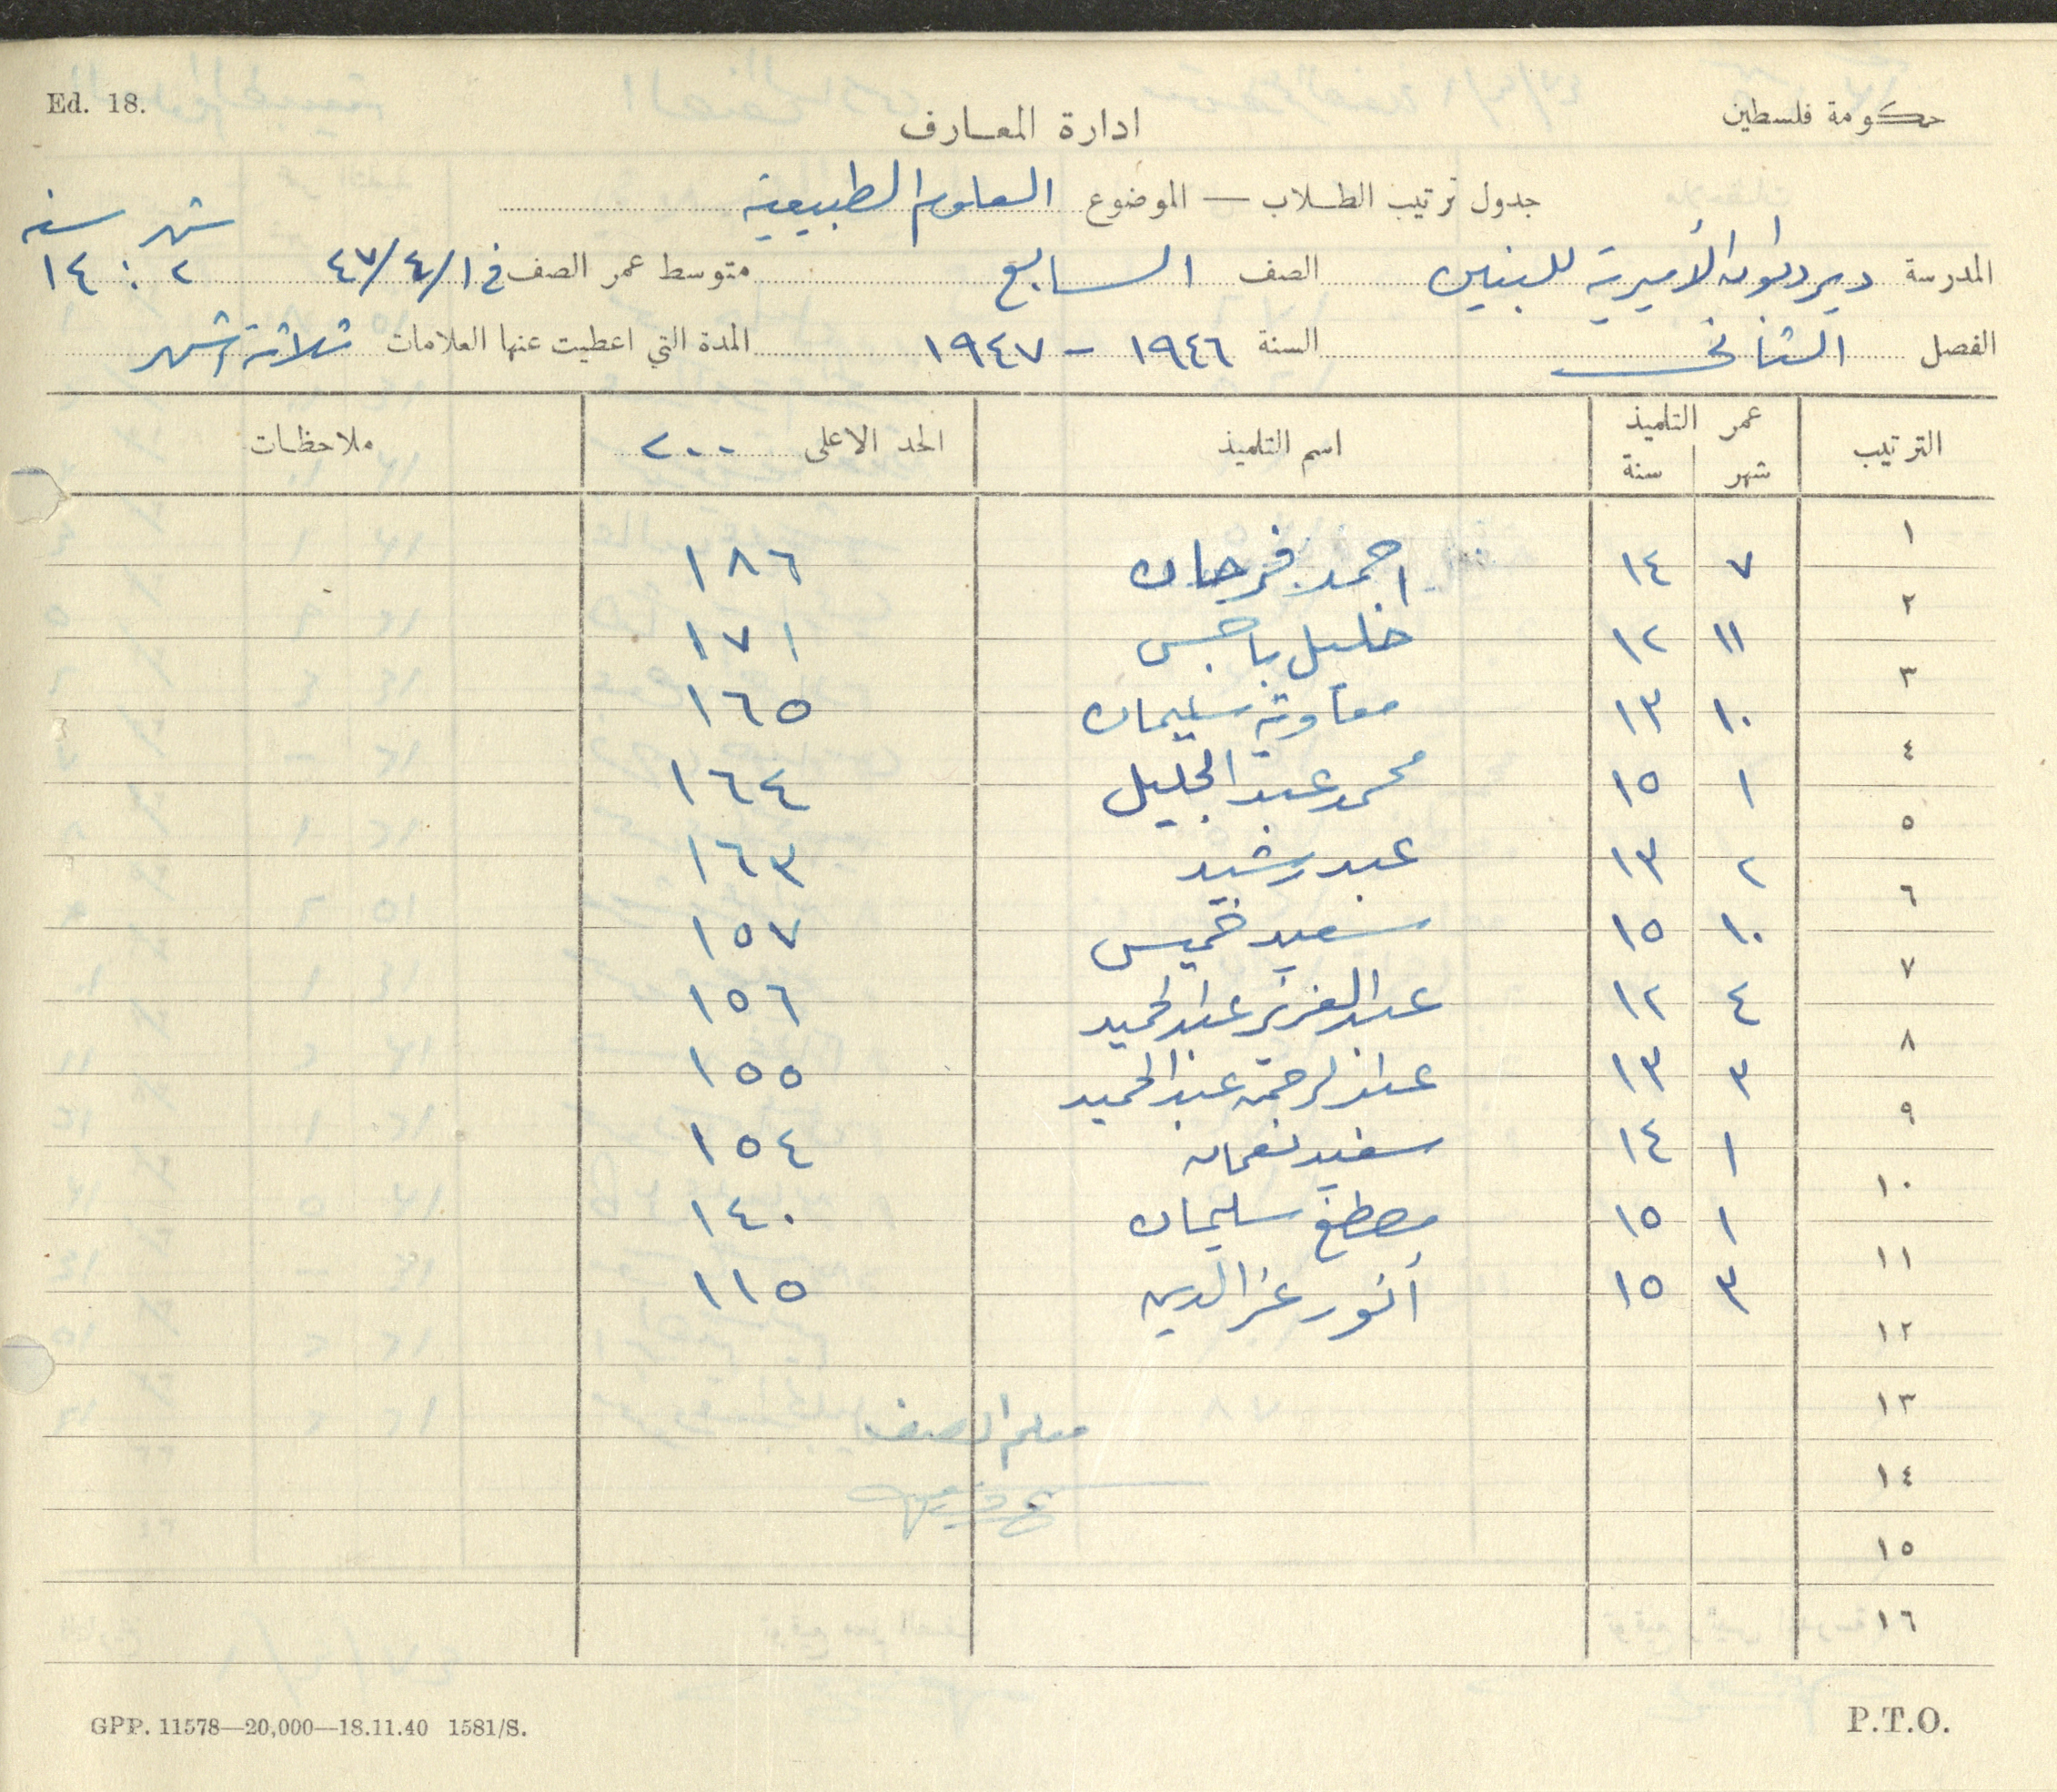 Ed. 18.
حكومة فلسطين
ادارة المعارف
جدول ترتيب الطلاب — الموضوع العلوم الطبيعية
المدرسة الأميرية للبنين الصف السابع متوسط عمر الصف في ١/٤/٤٧ شهر ٢ : سنه ١٤
الفصل الثاني السنة ١٩٤٦ - ١٩٤٧ المدة التي اعطيت عنها العلامات ثلاثة أشهر
الترتيب عمر التلميذ شهر سنة اسم التلميذ الحد الاعلى ٢٠٠ ملاحظات
١ ٧ ١٤ احمد فرحان ١٨٦
٢ ١١ ١٢ خليل باجس ١٧١
٣ ١٠ ١٣ معاوية سليمان ١٦٥
٤ ١ ١٥ محمد عبد الجليل ١٦٤
٥ ٢ ١٣ عبد رشيد ١٦٣
٦ ١٠ ١٥ سعيد خميس ١٥٧
٧ ٤ ١٢ عبد العزيز عبد الحميد ١٥٦
٨ ٣ ١٣ عبد الرحمن عبد الحميد ١٥٥
٩ ١ ١٤ سعيد نعمان ١٥٤
١٠ ١ ١٥ مصطفى سليمان ١٤٠
١١ ٣ ١٥ أنور عز الدين ١١٥
١٢
١٣
معلم الصف
١٤
١٥
١٦
GPP. 11578—20,000—18.11.40 1581/S.
P.T.O.